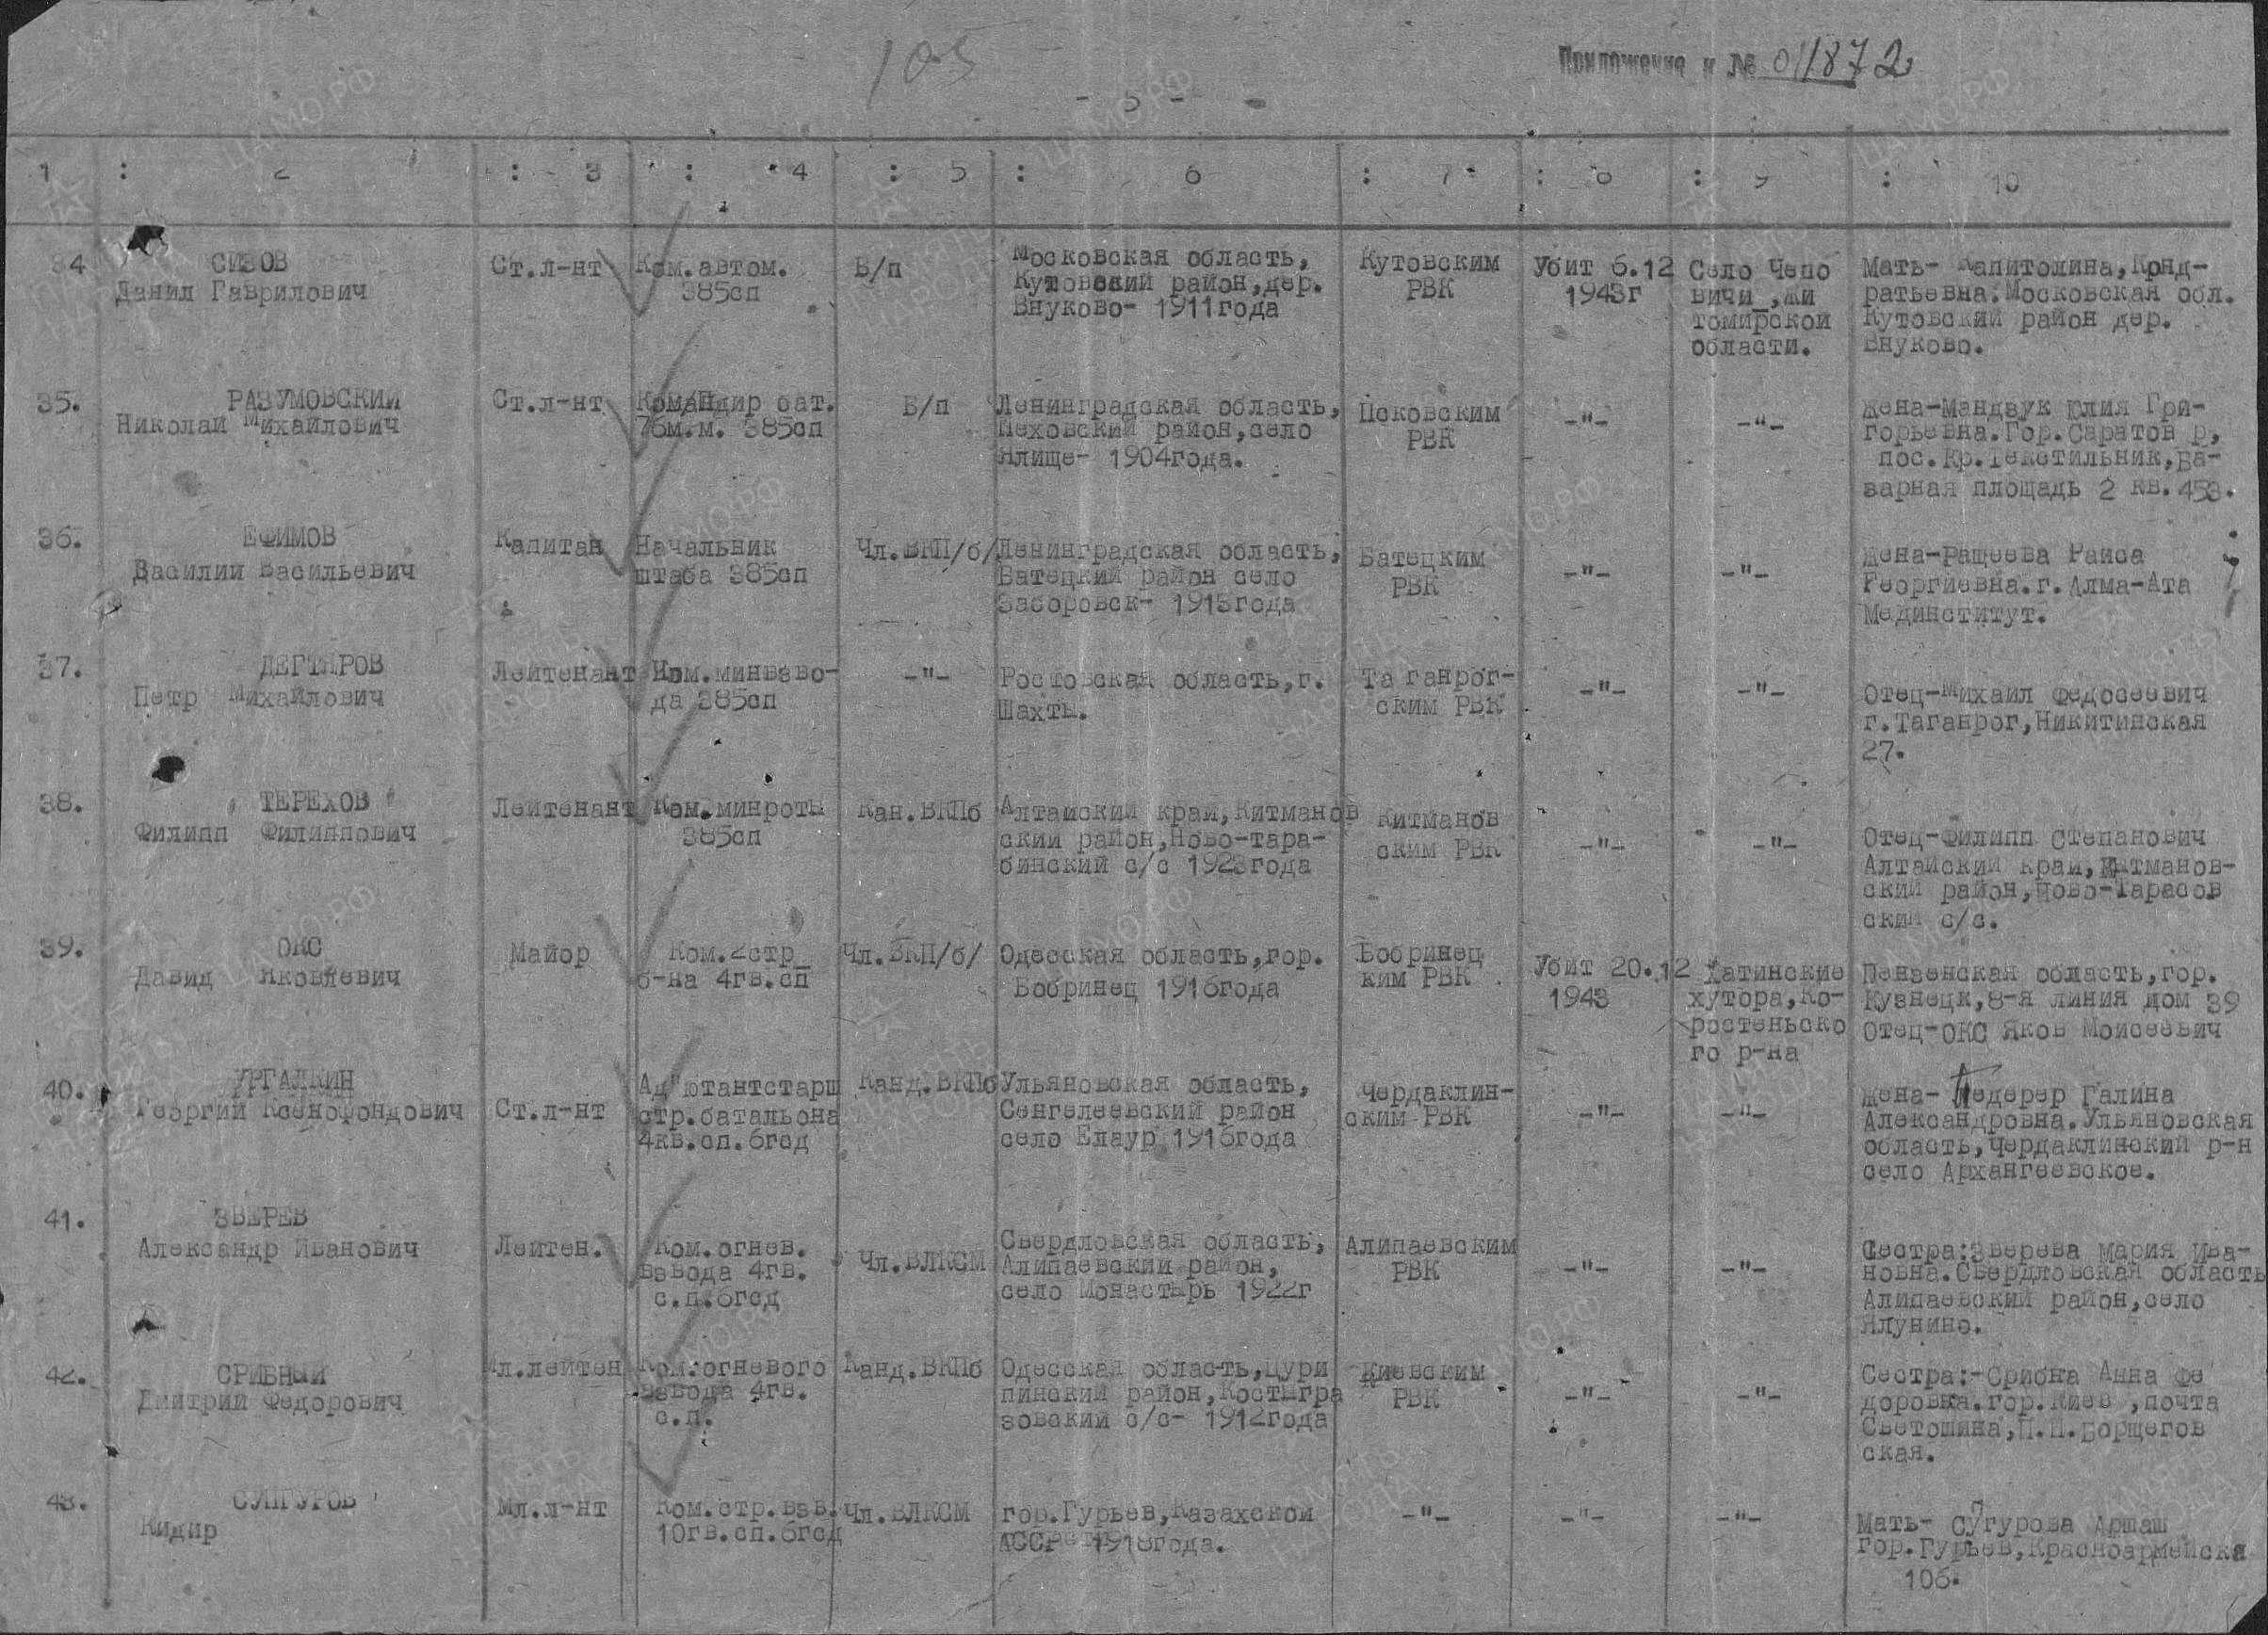 105
Приложение к № 011872
- 5 -
1 : 2 : 3 : 4 : 5 : 6 : 7 : 8 : 9 : 10
34
СИЗОВ
Данил Гаврилович
Ст.л-нт
Ком.автом.
385сп
Б/п
Московская область,
Кутовский район,дер.
Внуково- 1911года
Кутовским
РВК
Убит 6.12
1943г
Село Чепо
вичи ,жи
томирской
области.
Мать- Капитолина,Конд-
ратьевна.Московская обл.
Кутовский район дер.
Внуково.
35.
РАЗУМОВСКИЙ
Николай Михайлович
Ст.л-нт
Командир бат.
76м.м. 385сп
Б/п
Ленинградская область,
Пеховский район,село
Ялище- 1904года.
Псковским
РВК
-"-
-"-
Жена-Мандзук Юлия Гри-
горьевна.Гор.Саратов р,
пос.Кр.Текстильник,Ба-
зарная площадь 2 кв.453.
36.
ЕФИМОВ
Василий Васильевич
Капитан
Начальник
штаба 385сп
Чл.ВКП/б/
Ленинградская область,
Батецкий район село
Заборовск- 1913года
Батецким
РВК
-"-
-"-
Жена-Ращеева Раиса
Георгиевна.г.Алма-Ата
Мединститут.
37.
ДЕГТЯРОВ
Петр Михайлович
Лейтенант
Ком.минвзво-
да 385сп
-"-
Ростовская область,г.
Шахты.
Таганрог-
ским РВК
-"-
-"-
Отец-Михаил Федосеевич
г.Таганрог,Никитинская
27.
38.
ТЕРЕХОВ
Филипп Филиппович
Лейтенант
Ком.минроты
385сп
Кан.ВКПб
Алтайский край,Китманов
ский район,Ново-тара-
бинский с/с 1923года
Китманов
ским РВК
-"-
-"-
Отец-Филипп Степанович
Алтайский край,Китманов-
ский район,Ново-Тарасов
ский с/с.
39.
ОКС
Давид Яковлевич
Майор
Ком.2стр
б-на 4гв.сп
Чл.ВКП/б/
Одесская область,гор.
Бобринец 1916года
Бобринец
ким РВК
Убит 20.12
1943
Хатинские
хутора,Ко-
ростеньско
го р-на
Пензенская область,гор.
Кузнецк,8-я линия дом 39
Отец-ОКС Яков Моисеевич
40.
УРГАЛКИН
Георгий Ксенофондович
Ст.л-нт
Ад"ютантстарш
стр.батальона
4кв.сп.6гсд
Канд.ВКПб
Ульяновская область,
Сенгелеевский район
село Елаур 1916года
Чердаклин-
ским РВК
-"-
-"-
Жена- Педерер Галина
Александровна.Ульяновская
область,Чердаклинский р-н
село Архангеевское.
41.
ЗВЕРЕВ
Александр Иванович
Лейтен.
Ком.огнев.
взвода 4гв.
с.п.6гсд
Чл.ВЛКСМ
Свердловская область,
Алипаевский район,
село Монастырь 1922г
Алипаевским
РВК
-"-
-"-
Сестра:Зверева Мария Ива-
новна.Свердловская область
Алипаевский район,село
Ялунино.
42.
СРИБНЫЙ
Дмитрий Федорович
Мл.лейтен
Ком.огневого
взвода 4гв.
с.п.
Канд.ВКПб
Одесская область,Цури
пинский район,Костыгра
зовский с/с- 1912года
Киевским
РВК
-"-
-"-
Сестра:-Срибна Анна Фе
доровна.гор.Киев ,почта
Светошина,П.П.Борщегов
ская.
43.
СУНГУРОВ
Кидир
Мл.л-нт
Ком.стр.взв.
10гв.сп.6гсд
Чл.ВЛКСМ
гор.Гурьев,Казахской
АССР 1918года.
-"-
-"-
-"-
Мать- Сугурова Аршаш
гор.Гурьев,Красноармейска
106.